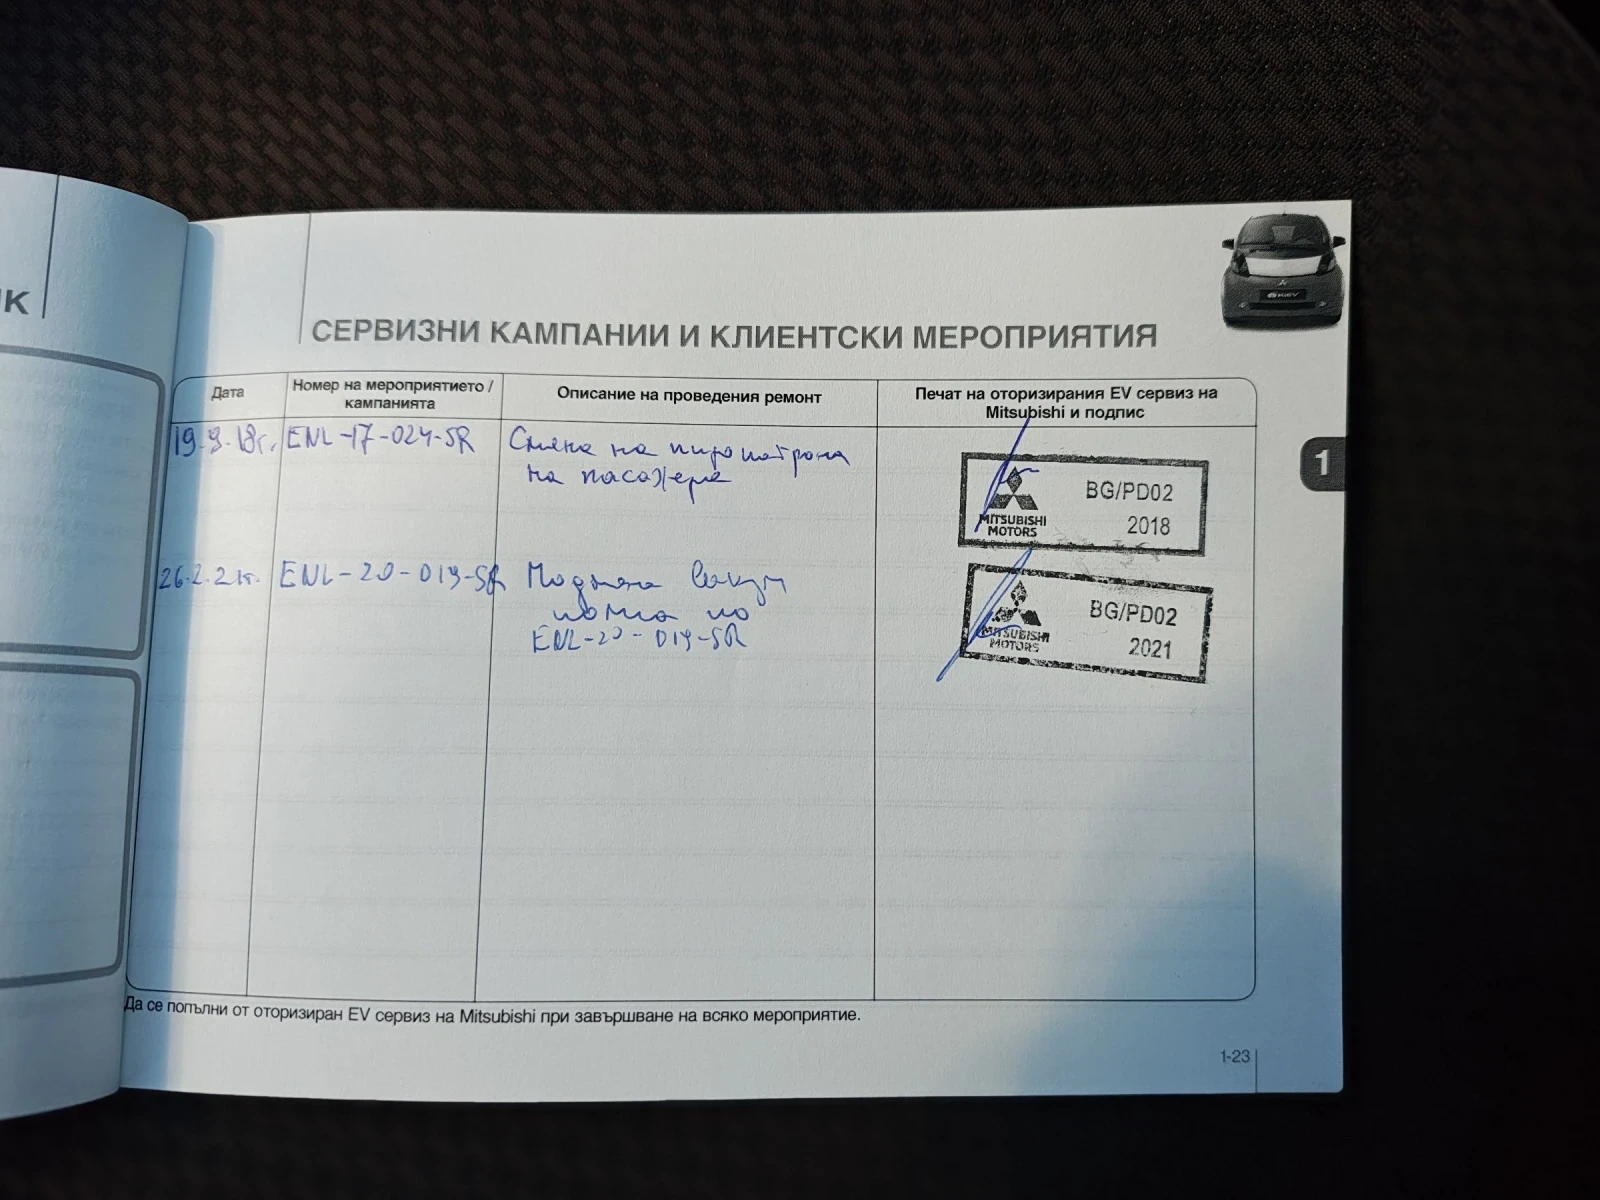 СЕРВИЗНИ КАМПАНИИ И КЛИЕНТСКИ МЕРОПРИЯТИЯ
Дата
Номер на мероприятието /
кампанията
Описание на проведения ремонт
Печат на оторизирания EV сервиз на
Mitsubishi и подпис
19.9.18г.
ENL-17-024-SR
Смяна на пиропатрона
на пасажера
MITSUBISHI
MOTORS
BG/PD02
2018
26.2.21г.
ENL-20-019-SR
Подмяна вакуум
помпа по
ENL-20-019-SR
MITSUBISHI
MOTORS
BG/PD02
2021
1
Да се попълни от оторизиран EV сервиз на Mitsubishi при завършване на всяко мероприятие.
1-23